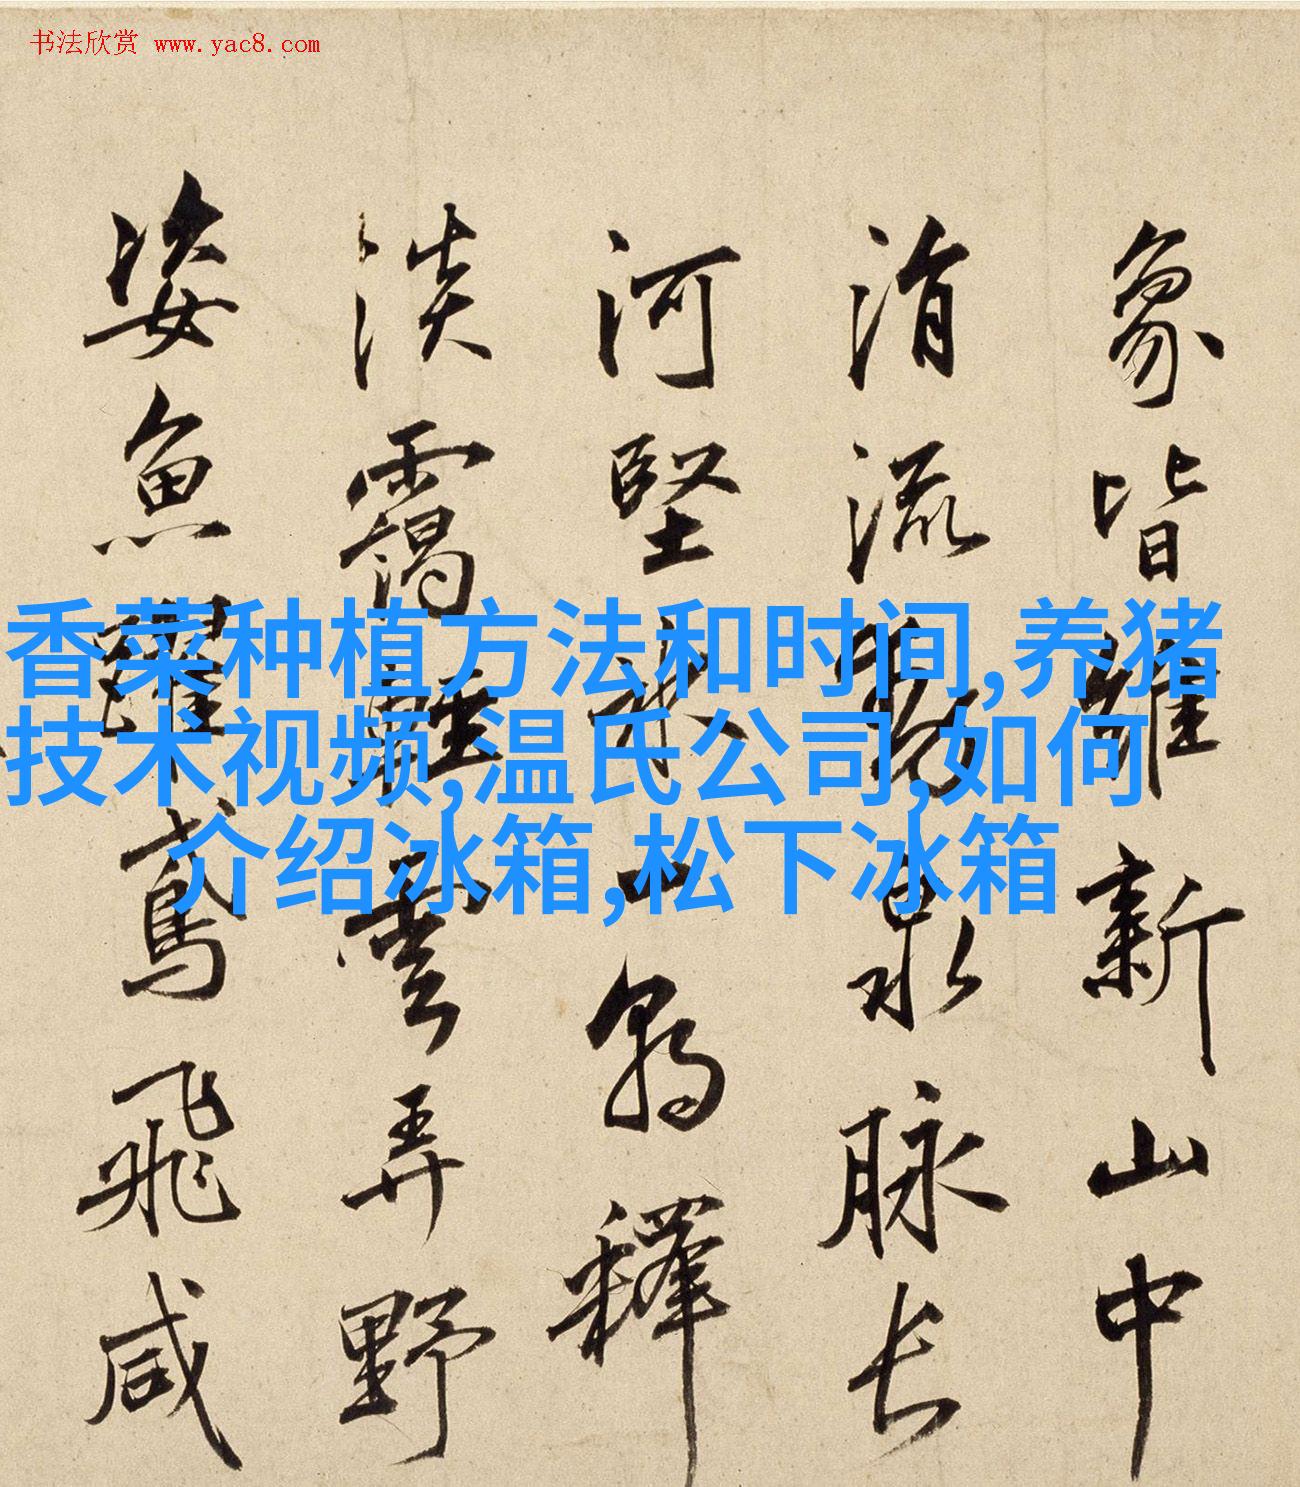 书法欣赏 www.yac8.com
象皆雖新山中
涓流
泉脉长
河堅
一為釋
淡靄輕雲弄野
姿魚躍鳶飛咸
香菜种植方法和时间,养猪
技术视频,温氏公司,如何
介绍冰箱,松下冰箱